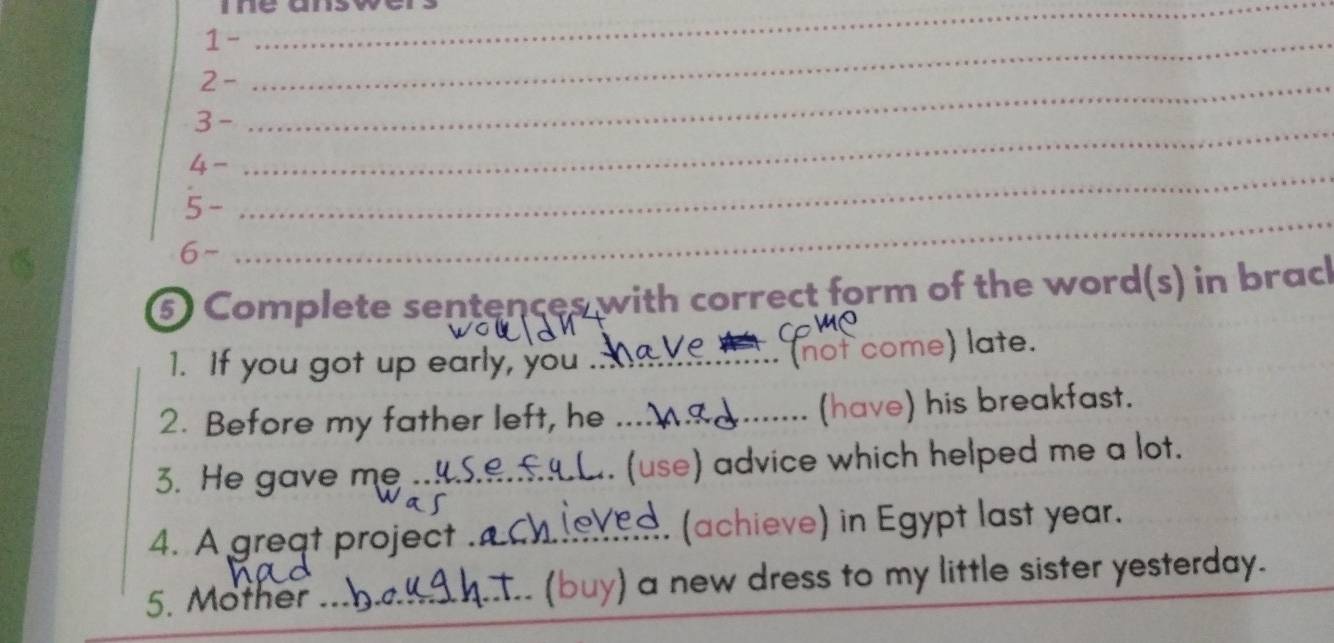 The answers
1- ....................
2- ....................
3- ....................
4- ....................
5- ....................
6- ....................
5 Complete sentences with correct form of the word(s) in brac
wouldn't
1. If you got up early, you ...have come... (not come) late.
2. Before my father left, he ....had....... (have) his breakfast.
3. He gave me ...useful.. (use) advice which helped me a lot.
was
4. A great project .achieved. (achieve) in Egypt last year.
had
5. Mother ...bought.. (buy) a new dress to my little sister yesterday.